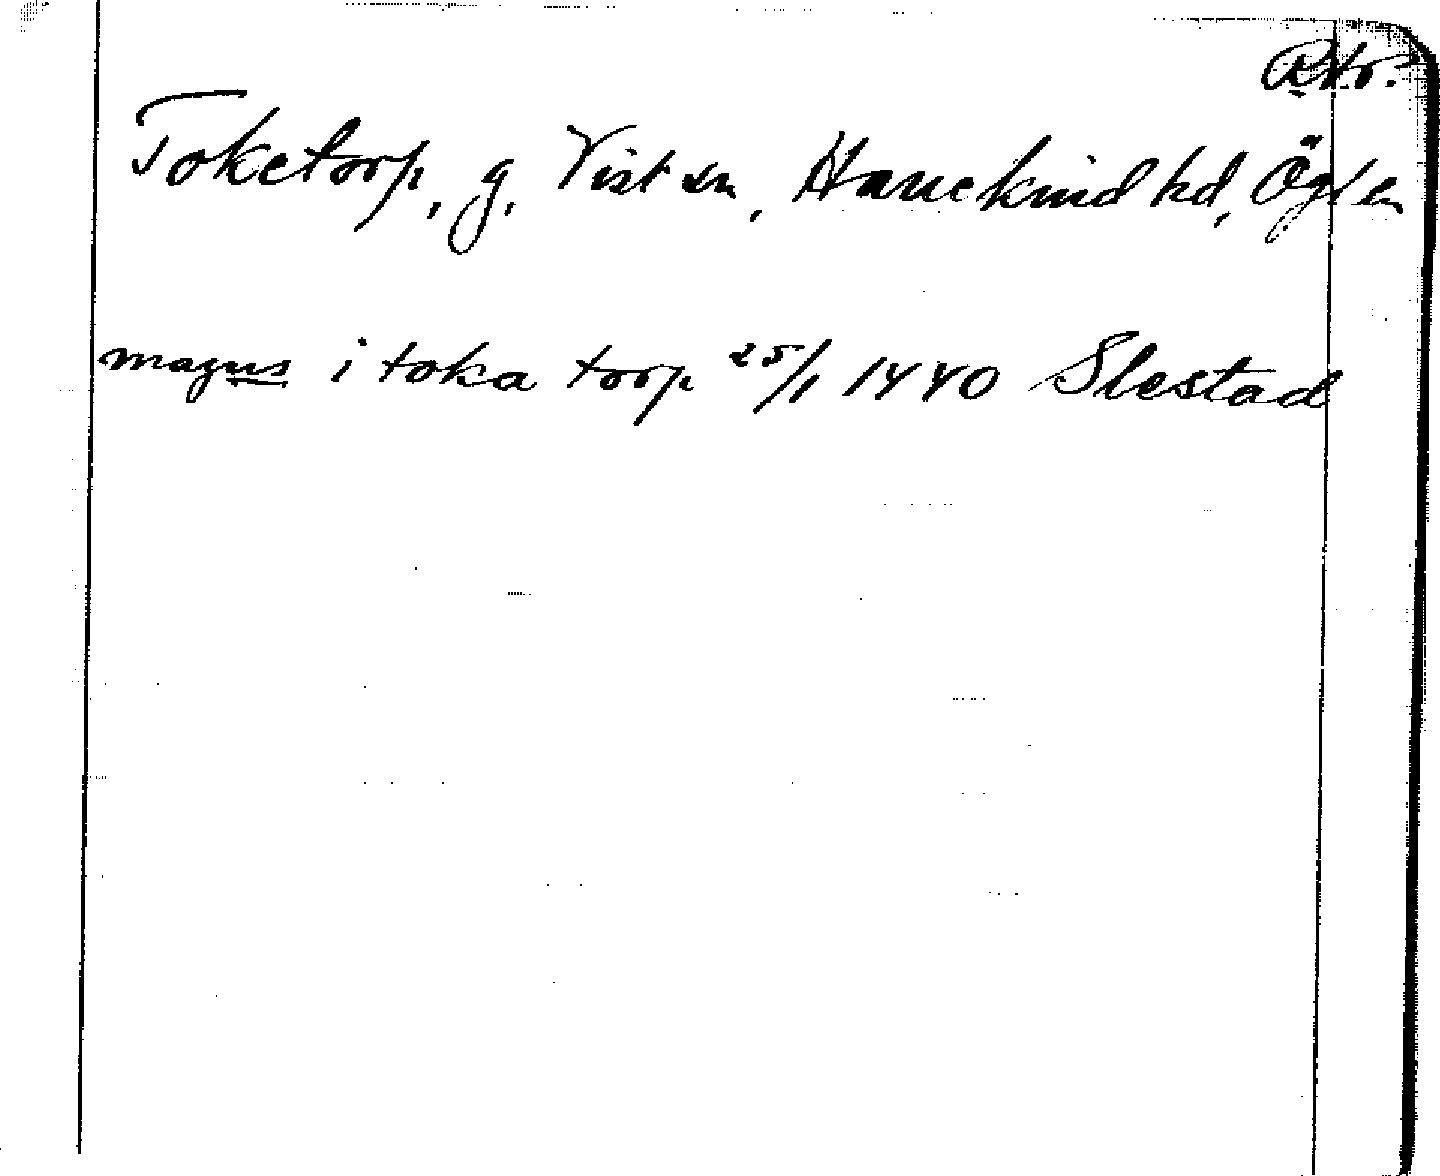 Rkr.
Toketorp, g, Vist sn, Hanekind hd, Ögl en
magnus i toka torp 25/1 1440 Slestad